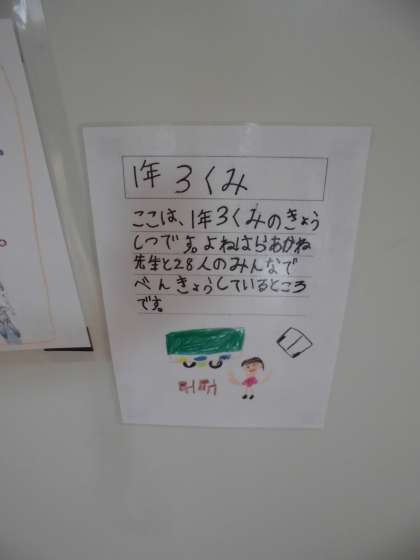 1年 3くみ
ここは、1年3くみのきょう
しつです。よねはらあかね
先生と28人のみんなで
べんきょうしているところ
です。